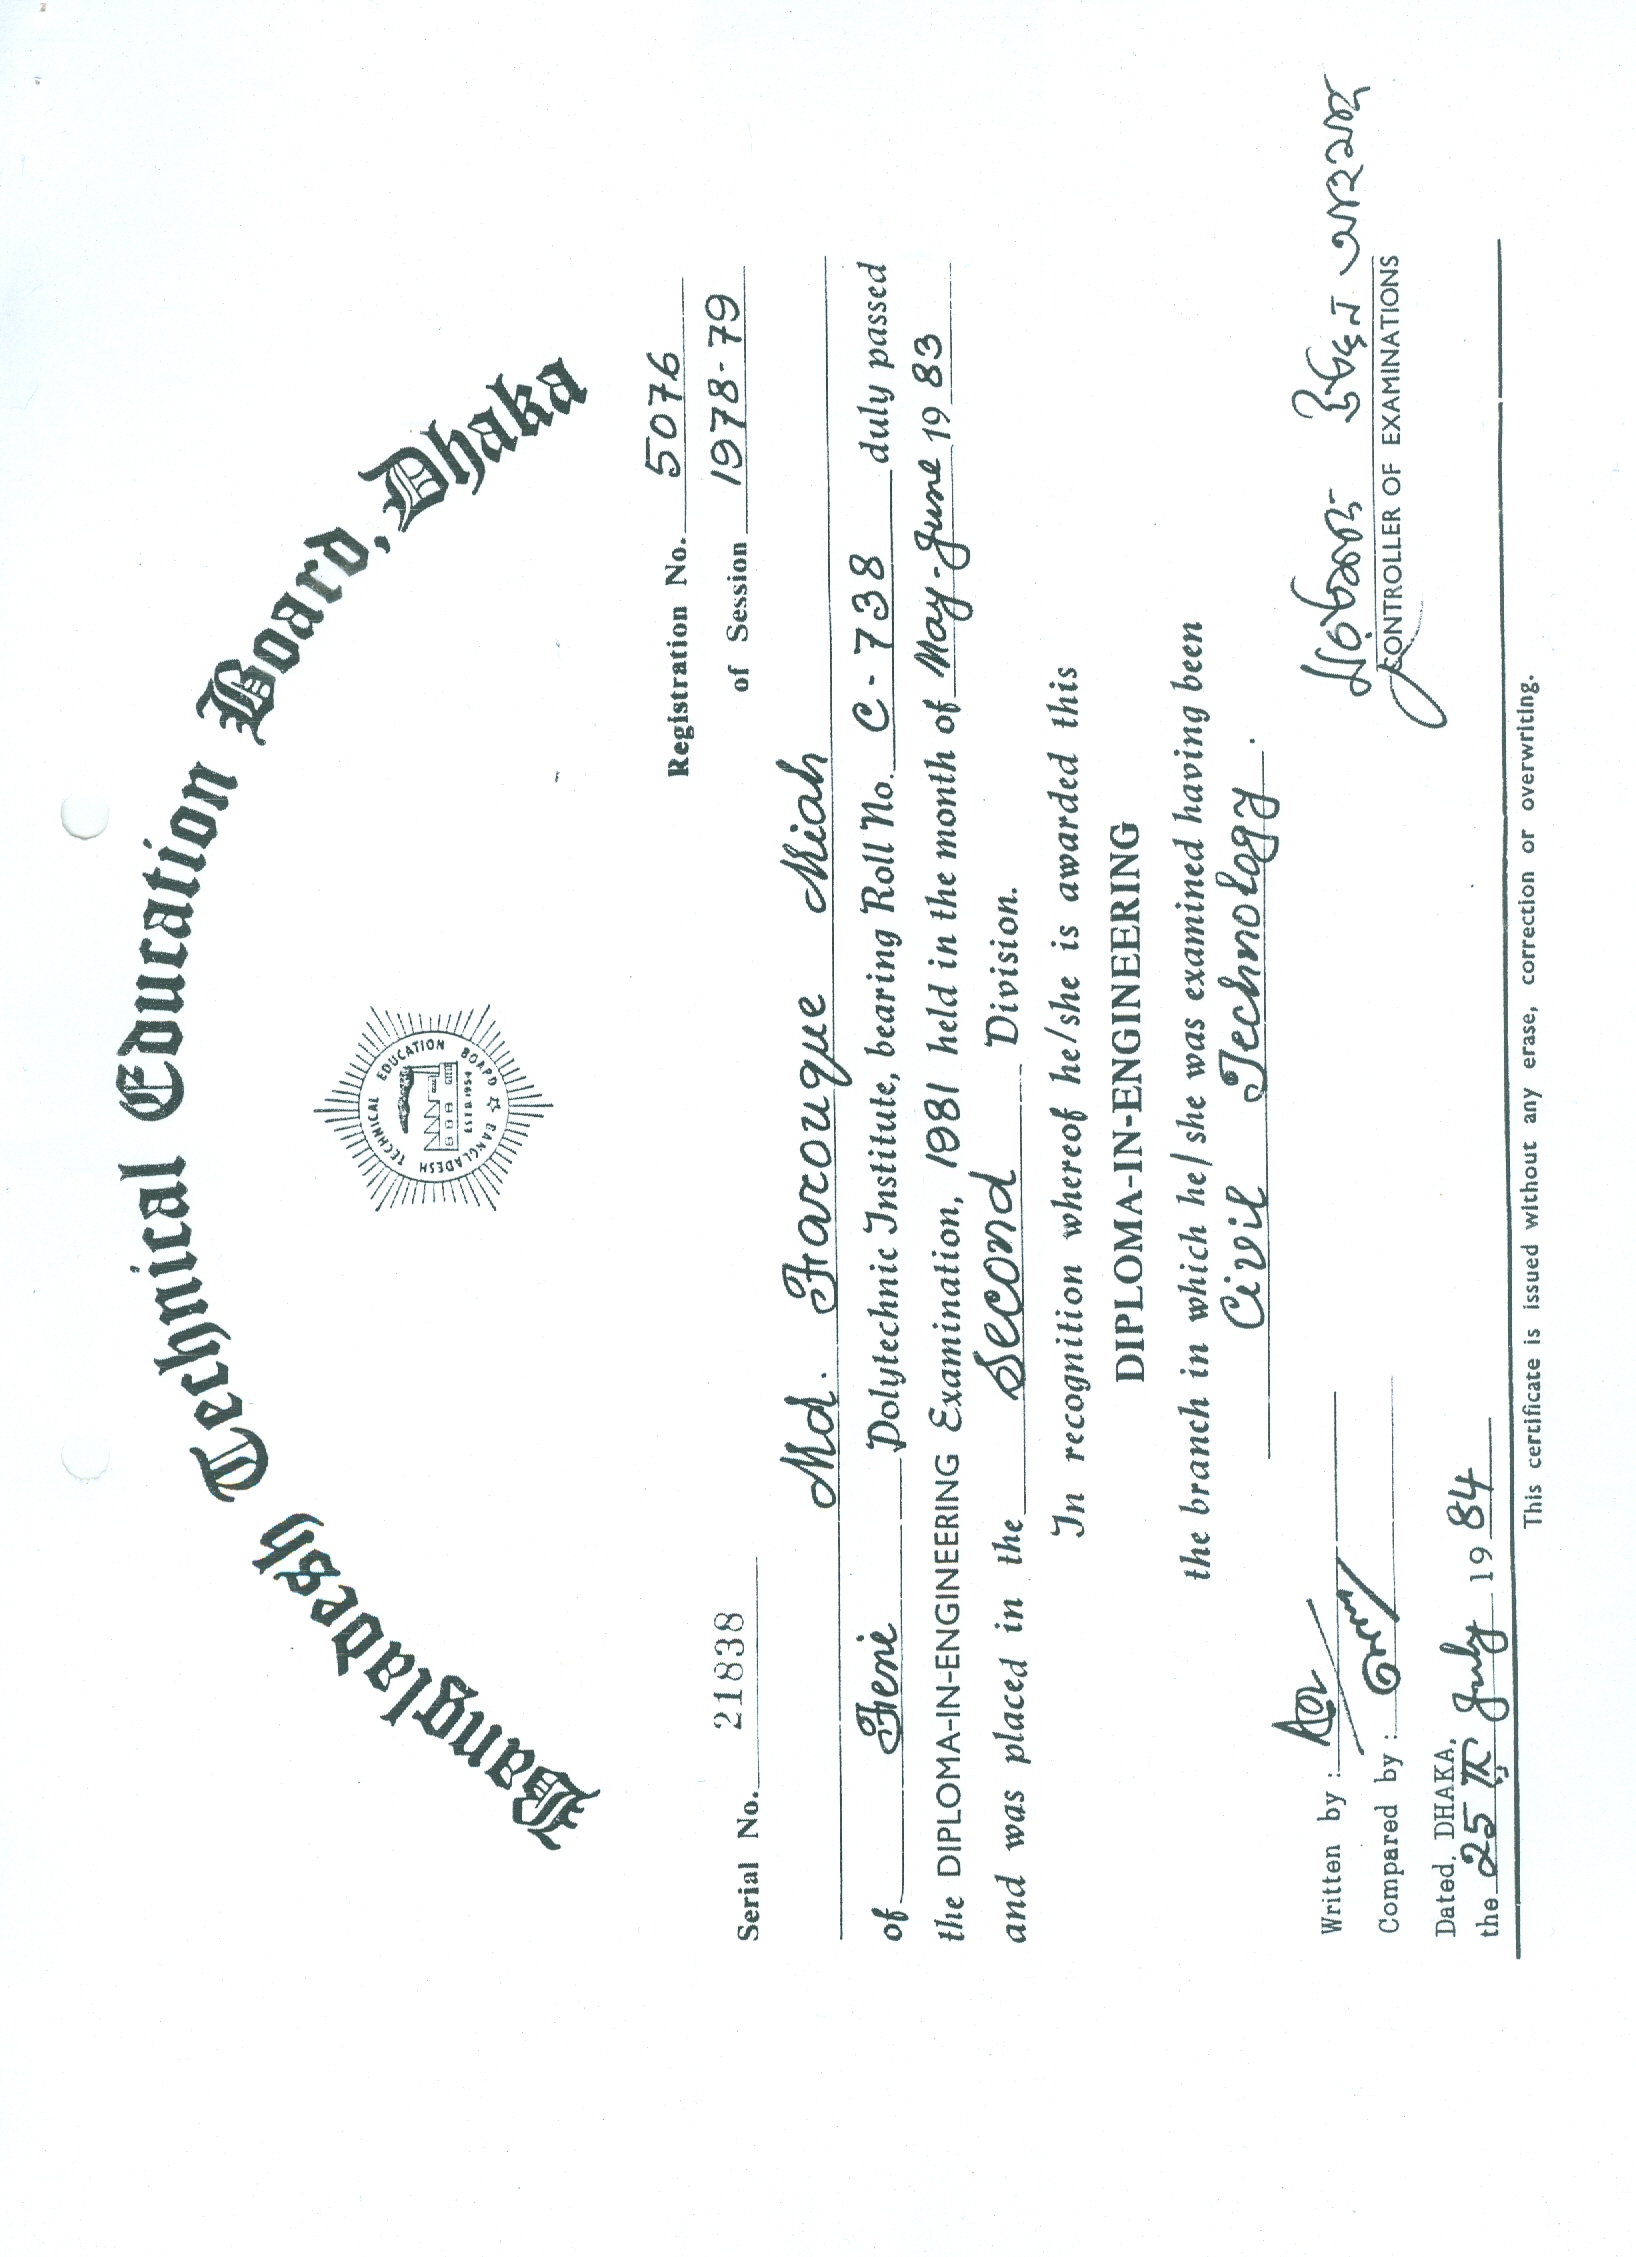 Bangladesh Technical Education Board, Dhaka
BANGLADESH TECHNICAL EDUCATION BOARD
ESTD. 1954
Registration No. 5076
Serial No. 21838 of Session 1978-79
Md. Farouque Miah
of Feni Polytechnic Institute, bearing Roll No. C-738 duly passed
the DIPLOMA-IN-ENGINEERING Examination, 1981 held in the month of May-June 1983
and was placed in the Second Division.
In recognition whereof he/she is awarded this
DIPLOMA-IN-ENGINEERING
the branch in which he/she was examined having been
Civil Technology.
Written by :
Compared by :
CONTROLLER OF EXAMINATIONS
Dated, DHAKA,
the 25th July 1984
This certificate is issued without any erase, correction or overwriting.